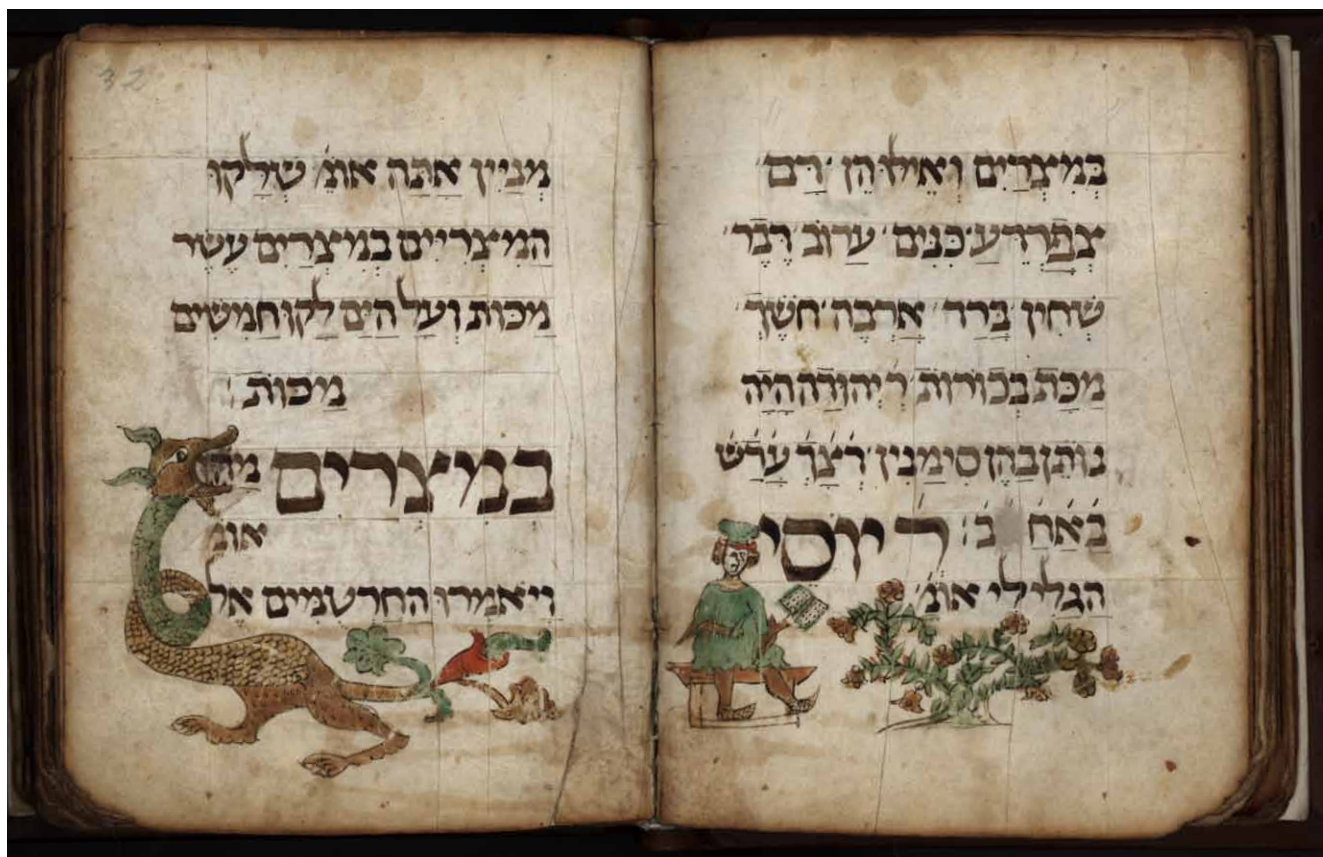 בְּמִצְרַיִם וְאֵילוּ הֵן דָּם
צְפַרְדֵּעַ כִּנִּים עָרוֹב דֶּבֶר
שְׁחִין בָּרָד אַרְבֶּה חֹשֶׁךְ
מַכַּת בְּכוֹרוֹת ר' יְהוּדָה הָיָה
נוֹתֵן בָּהֶן סִימָנִין דְּצַ״ךְ עֲדַ״שׁ
בְּאַחַ״ב: ר' יוֹסֵי
הַגְּלִילִי אוֹמֵ'
32
מִנַּיִין אַתָּה אוֹמֵ' שֶׁלָּקוּ
הַמִּצְרִיִּים בְּמִצְרַיִם עֶשֶׂר
מַכּוֹת וְעַל הַיָּם לָקוּ חֲמִשִּׁים
מַכּוֹת
בְּמִצְרַיִם מַהוּ
אוֹמֵ'
וַיֹּאמְרוּ הַחַרְטֻמִּים אֶל